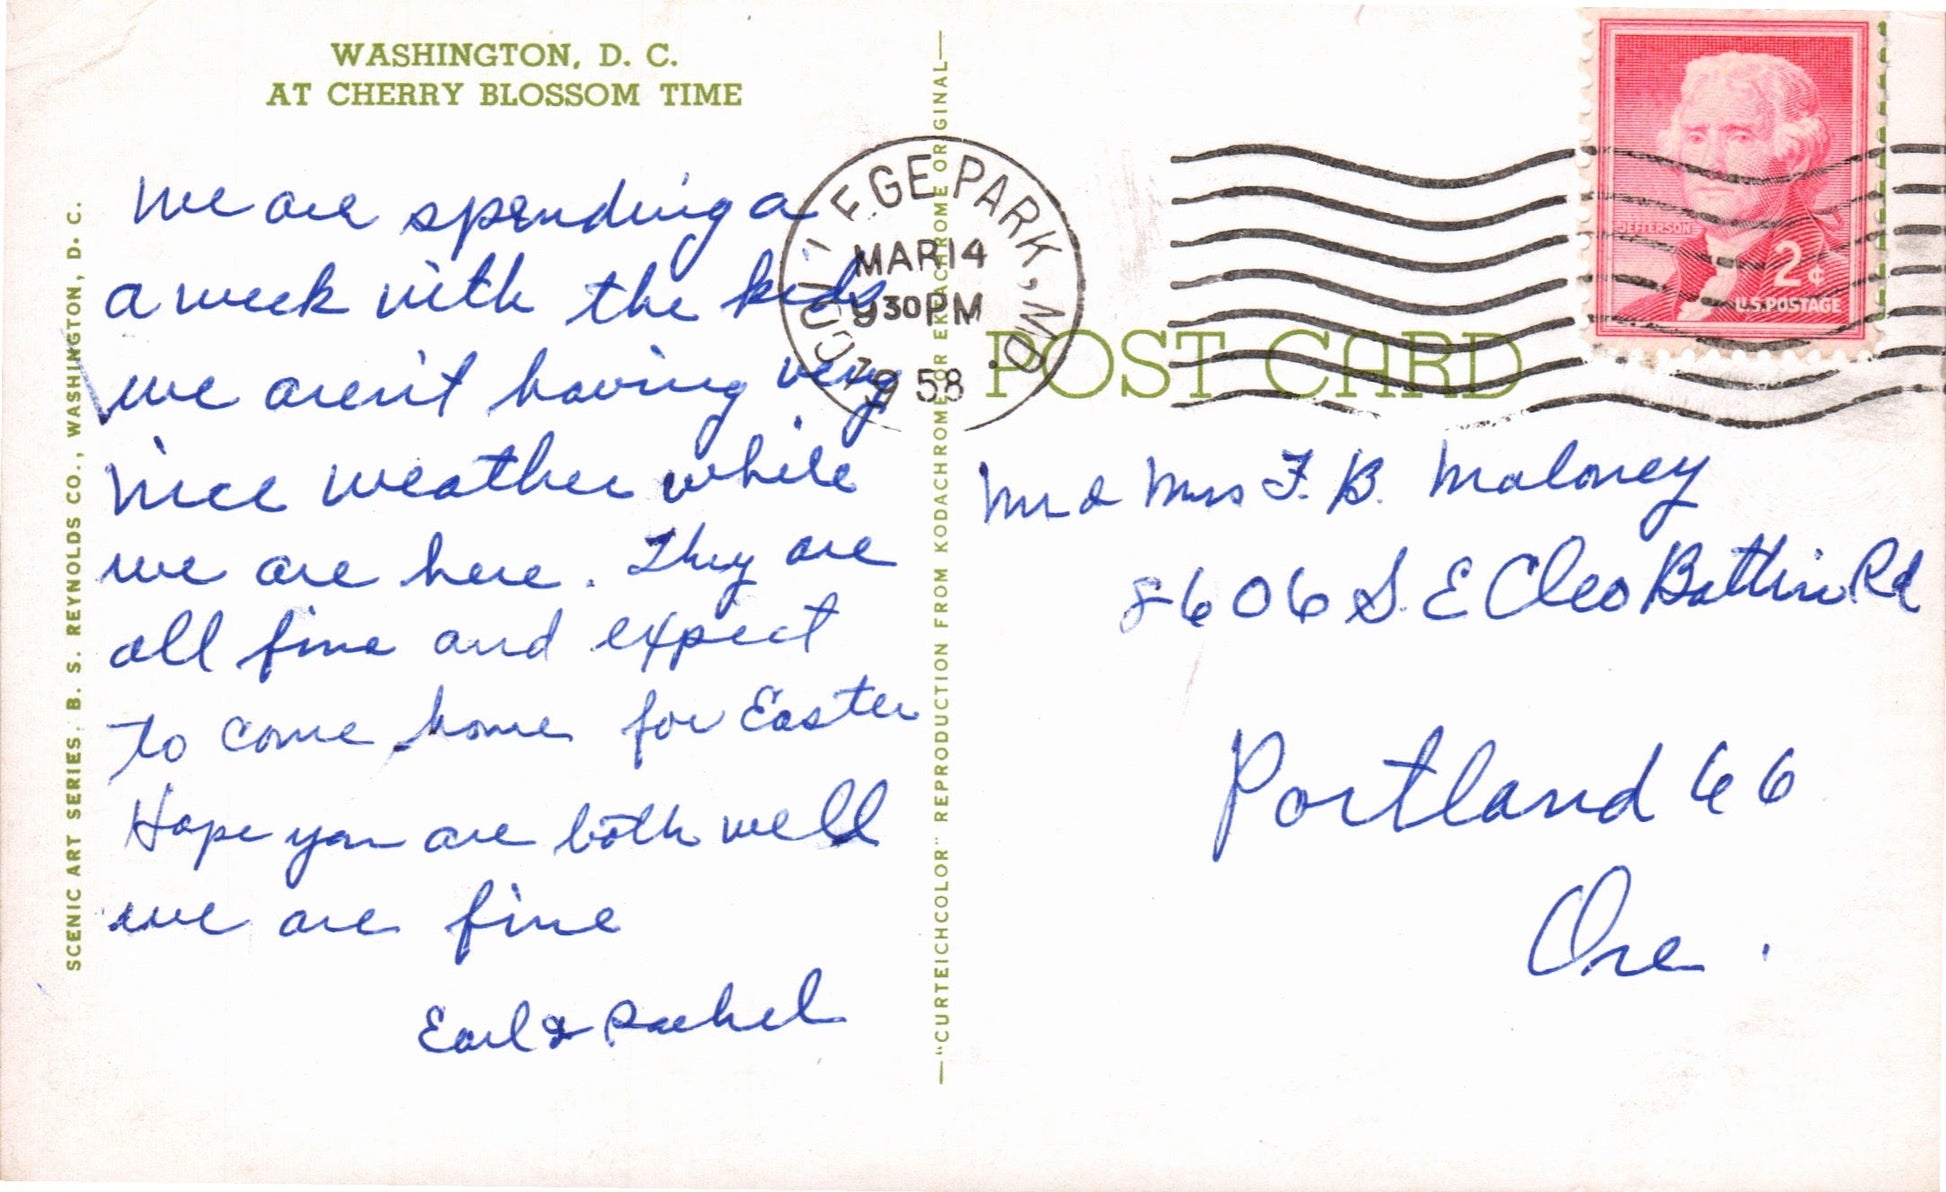 WASHINGTON, D. C.
AT CHERRY BLOSSOM TIME
We are spending a
a week with the kids
we aren't having very
nice weather while
we are here. They are
all fine and expect
to come home for Easter
Hope you are both well
we are fine
Earl & Rachel
SCENIC ART SERIES. B. S. REYNOLDS CO., WASHINGTON, D. C.
—"CURTEICHCOLOR" REPRODUCTION FROM KODACHROME OR EKTACHROME ORIGINAL—
COLLEGE PARK, MD.
MAR 14
930 PM
1958
POST CARD
JEFFERSON
2¢
U.S. POSTAGE
Mr & Mrs F. B. Maloney
8606 S. E Cleo Battin Rd
Portland 66
Ore.